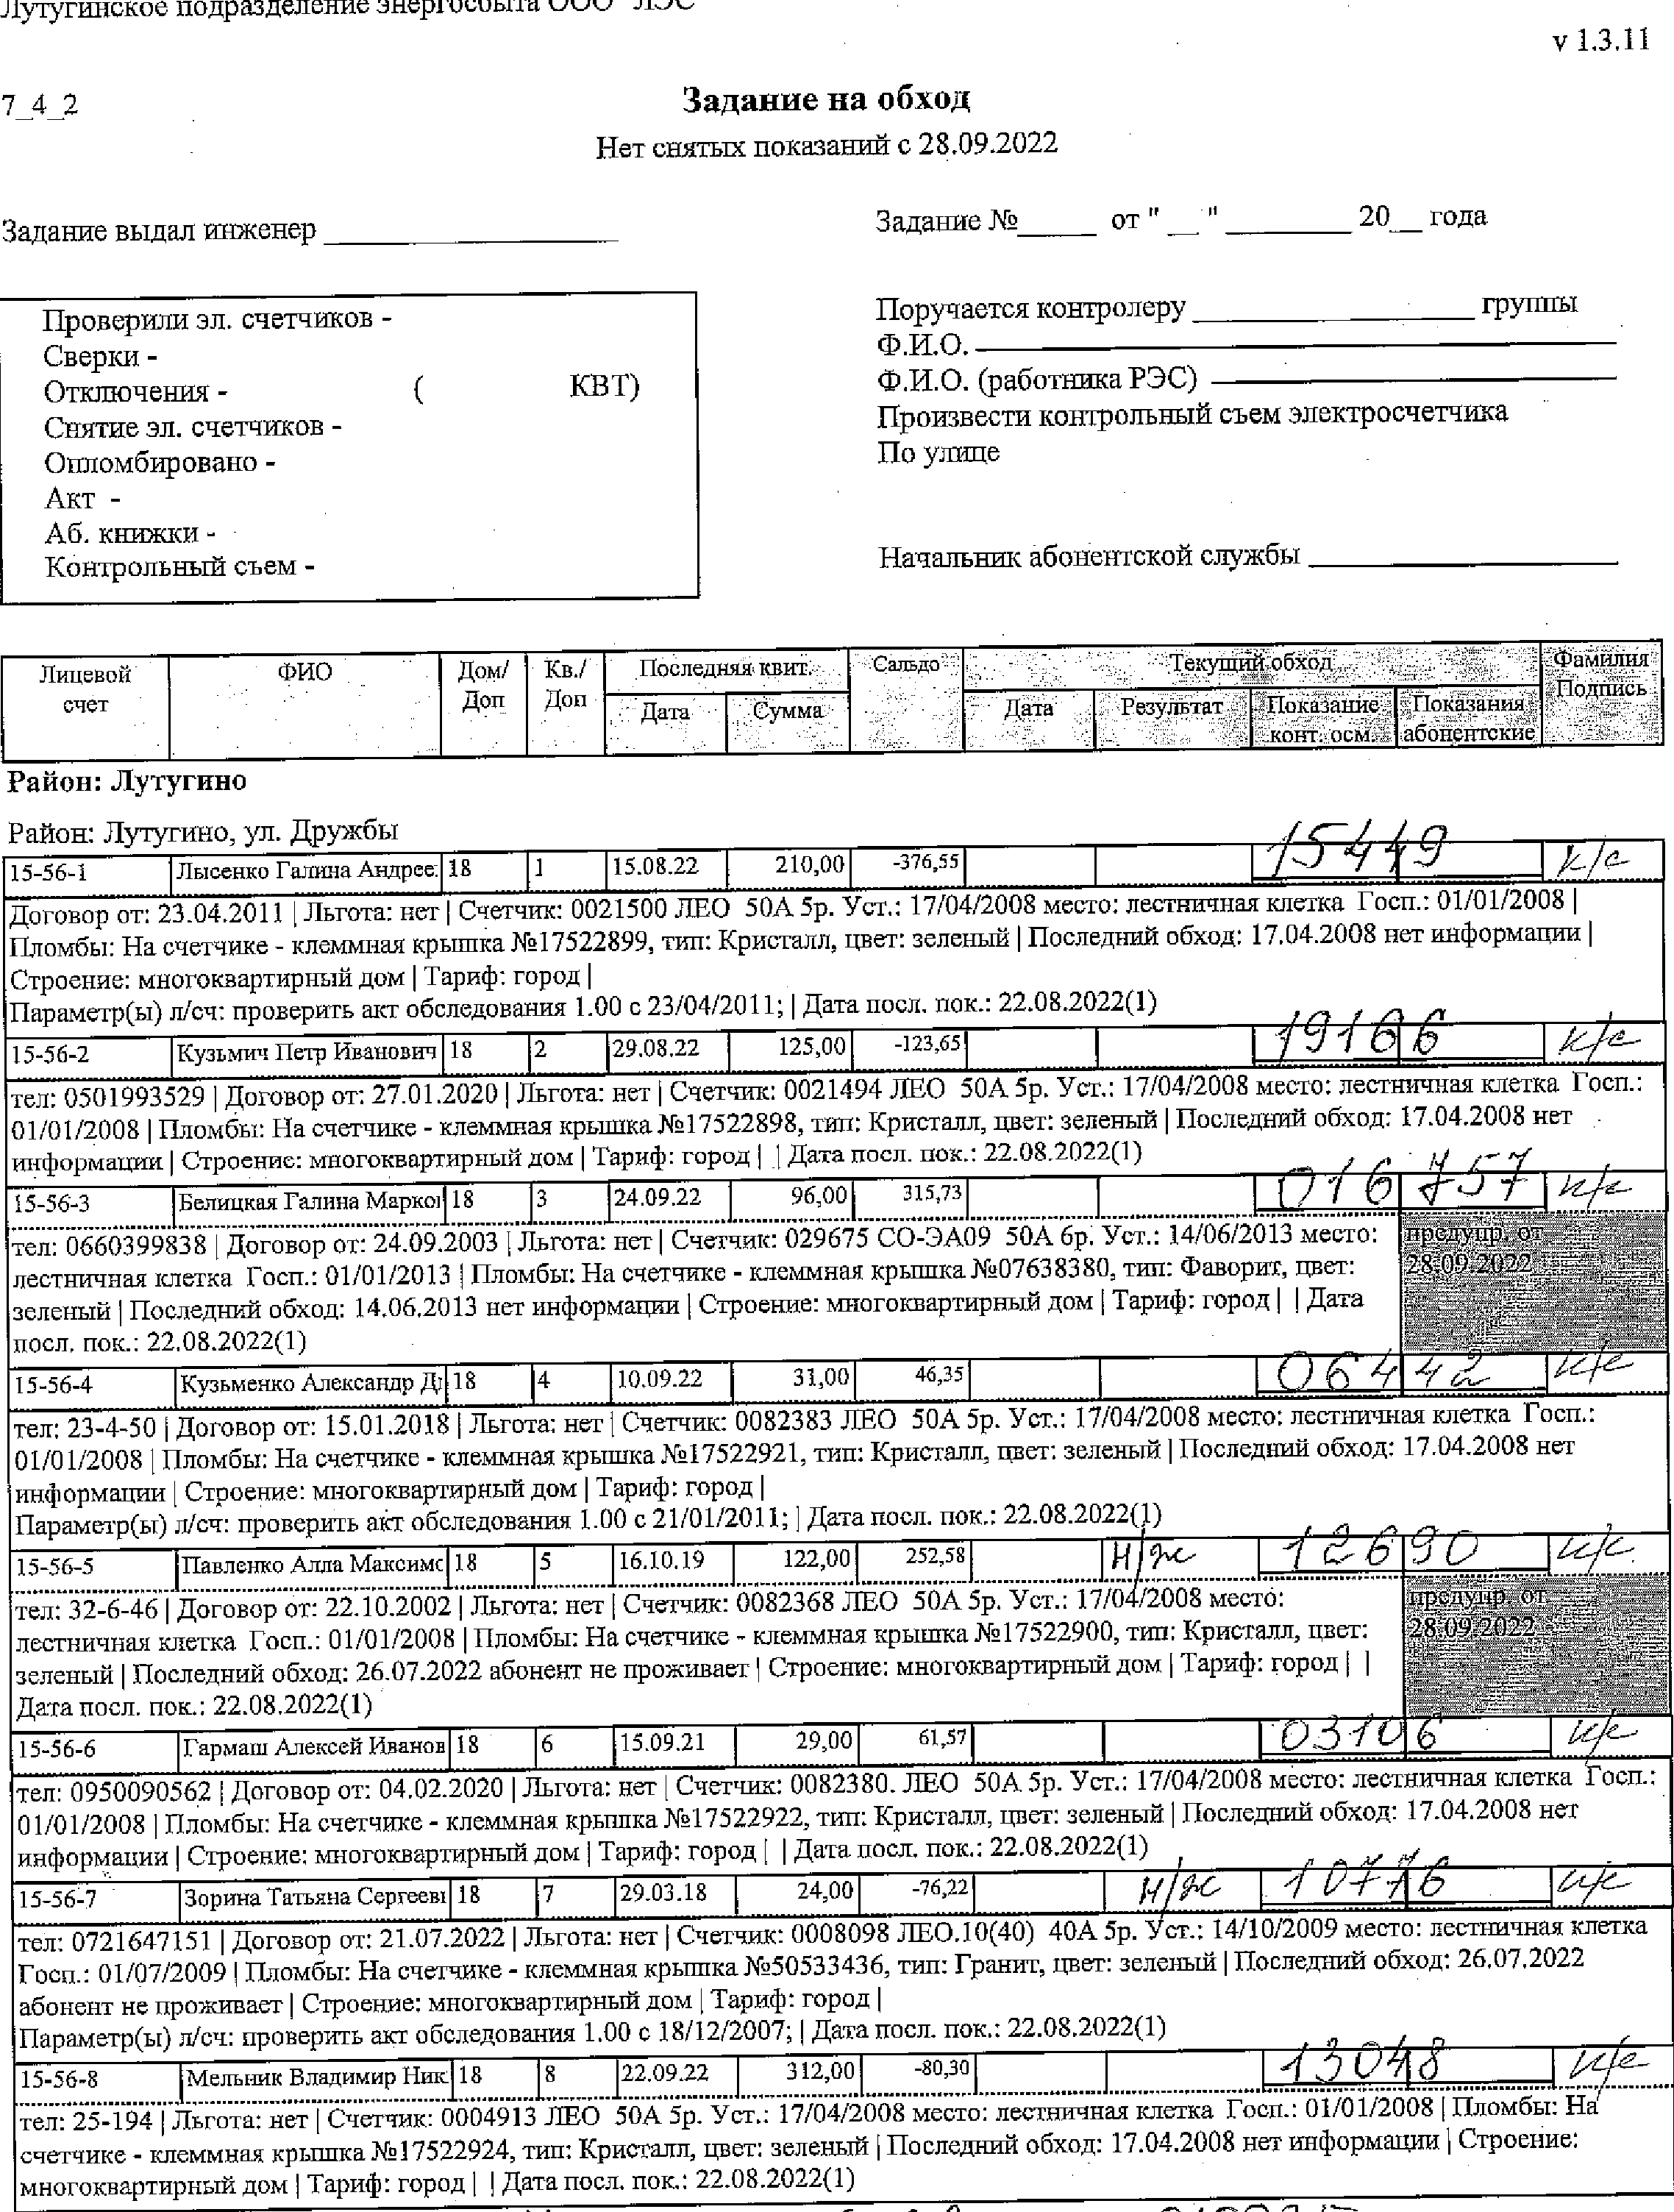 Лутугинское подразделение энергосбыта ООО "ЛЭС"
v 1.3.11
7_4_2
Задание на обход
Нет снятых показаний с 28.09.2022
Задание выдал инженер ____
Задание №____ от "__" ____ 20__ года
Проверили эл. счетчиков -
Сверки -
Отключения - ( КВТ)
Снятие эл. счетчиков -
Опломбировано -
Акт -
Аб. книжки -
Контрольный съем -
Поручается контролеру ____ группы
Ф.И.О.
Ф.И.О. (работника РЭС)
Произвести контрольный съем электросчетчика
По улице
Начальник абонентской службы ____
Лицевой счет | ФИО | Дом/ Доп | Кв./ Доп | Последняя квит. | Сальдо | Текущий обход | Фамилия Подпись
Дата | Сумма | Дата | Результат | Показание конт. осм. | Показания абонентские
Район: Лутугино
Район: Лутугино, ул. Дружбы
15-56-1 Лысенко Галина Андрее 18 1 15.08.22 210,00 -376,55 15449 к/с
Договор от: 23.04.2011 | Льгота: нет | Счетчик: 0021500 ЛЕО 50А 5р. Уст.: 17/04/2008 место: лестничная клетка Госп.: 01/01/2008 |
Пломбы: На счетчике - клеммная крышка №17522899, тип: Кристалл, цвет: зеленый | Последний обход: 17.04.2008 нет информации |
Строение: многоквартирный дом | Тариф: город |
Параметр(ы) л/сч: проверить акт обследования 1.00 с 23/04/2011; | Дата посл. пок.: 22.08.2022(1)
15-56-2 Кузьмич Петр Иванович 18 2 29.08.22 125,00 -123,65 19166 к/с
тел: 0501993529 | Договор от: 27.01.2020 | Льгота: нет | Счетчик: 0021494 ЛЕО 50А 5р. Уст.: 17/04/2008 место: лестничная клетка Госп.:
01/01/2008 | Пломбы: На счетчике - клеммная крышка №17522898, тип: Кристалл, цвет: зеленый | Последний обход: 17.04.2008 нет
информации | Строение: многоквартирный дом | Тариф: город | | Дата посл. пок.: 22.08.2022(1)
15-56-3 Белицкая Галина Марко 18 3 24.09.22 96,00 315,73 016757 к/с
тел: 0660399838 | Договор от: 24.09.2003 | Льгота: нет | Счетчик: 029675 СО-ЭА09 50А 6р. Уст.: 14/06/2013 место:
лестничная клетка Госп.: 01/01/2013 | Пломбы: На счетчике - клеммная крышка №07638380, тип: Фаворит, цвет:
зеленый | Последний обход: 14.06.2013 нет информации | Строение: многоквартирный дом | Тариф: город | | Дата
посл. пок.: 22.08.2022(1)
предупр. от
28.09.2022
15-56-4 Кузьменко Александр Д 18 4 10.09.22 31,00 46,35 06442 к/с
тел: 23-4-50 | Договор от: 15.01.2018 | Льгота: нет | Счетчик: 0082383 ЛЕО 50А 5р. Уст.: 17/04/2008 место: лестничная клетка Госп.:
01/01/2008 | Пломбы: На счетчике - клеммная крышка №17522921, тип: Кристалл, цвет: зеленый | Последний обход: 17.04.2008 нет
информации | Строение: многоквартирный дом | Тариф: город |
Параметр(ы) л/сч: проверить акт обследования 1.00 с 21/01/2011; | Дата посл. пок.: 22.08.2022(1)
15-56-5 Павленко Алла Максимо 18 5 16.10.19 122,00 252,58 н/ж 12690 к/с
тел: 32-6-46 | Договор от: 22.10.2002 | Льгота: нет | Счетчик: 0082368 ЛЕО 50А 5р. Уст.: 17/04/2008 место:
лестничная клетка Госп.: 01/01/2008 | Пломбы: На счетчике - клеммная крышка №17522900, тип: Кристалл, цвет:
зеленый | Последний обход: 26.07.2022 абонент не проживает | Строение: многоквартирный дом | Тариф: город | |
Дата посл. пок.: 22.08.2022(1)
предупр. от
28.09.2022
15-56-6 Гармаш Алексей Иванов 18 6 15.09.21 29,00 61,57 03106 к/с
тел: 0950090562 | Договор от: 04.02.2020 | Льгота: нет | Счетчик: 0082380. ЛЕО 50А 5р. Уст.: 17/04/2008 место: лестничная клетка Госп.:
01/01/2008 | Пломбы: На счетчике - клеммная крышка №17522922, тип: Кристалл, цвет: зеленый | Последний обход: 17.04.2008 нет
информации | Строение: многоквартирный дом | Тариф: город | | Дата посл. пок.: 22.08.2022(1)
15-56-7 Зорина Татьяна Сергеевн 18 7 29.03.18 24,00 -76,22 н/ж 10776 к/с
тел: 0721647151 | Договор от: 21.07.2022 | Льгота: нет | Счетчик: 0008098 ЛЕО.10(40) 40А 5р. Уст.: 14/10/2009 место: лестничная клетка
Госп.: 01/07/2009 | Пломбы: На счетчике - клеммная крышка №50533436, тип: Гранит, цвет: зеленый | Последний обход: 26.07.2022
абонент не проживает | Строение: многоквартирный дом | Тариф: город |
Параметр(ы) л/сч: проверить акт обследования 1.00 с 18/12/2007; | Дата посл. пок.: 22.08.2022(1)
15-56-8 Мельник Владимир Ник 18 8 22.09.22 312,00 -80,30 13048 к/с
тел: 25-194 | Льгота: нет | Счетчик: 0004913 ЛЕО 50А 5р. Уст.: 17/04/2008 место: лестничная клетка Госп.: 01/01/2008 | Пломбы: На
счетчике - клеммная крышка №17522924, тип: Кристалл, цвет: зеленый | Последний обход: 17.04.2008 нет информации | Строение:
многоквартирный дом | Тариф: город | | Дата посл. пок.: 22.08.2022(1)